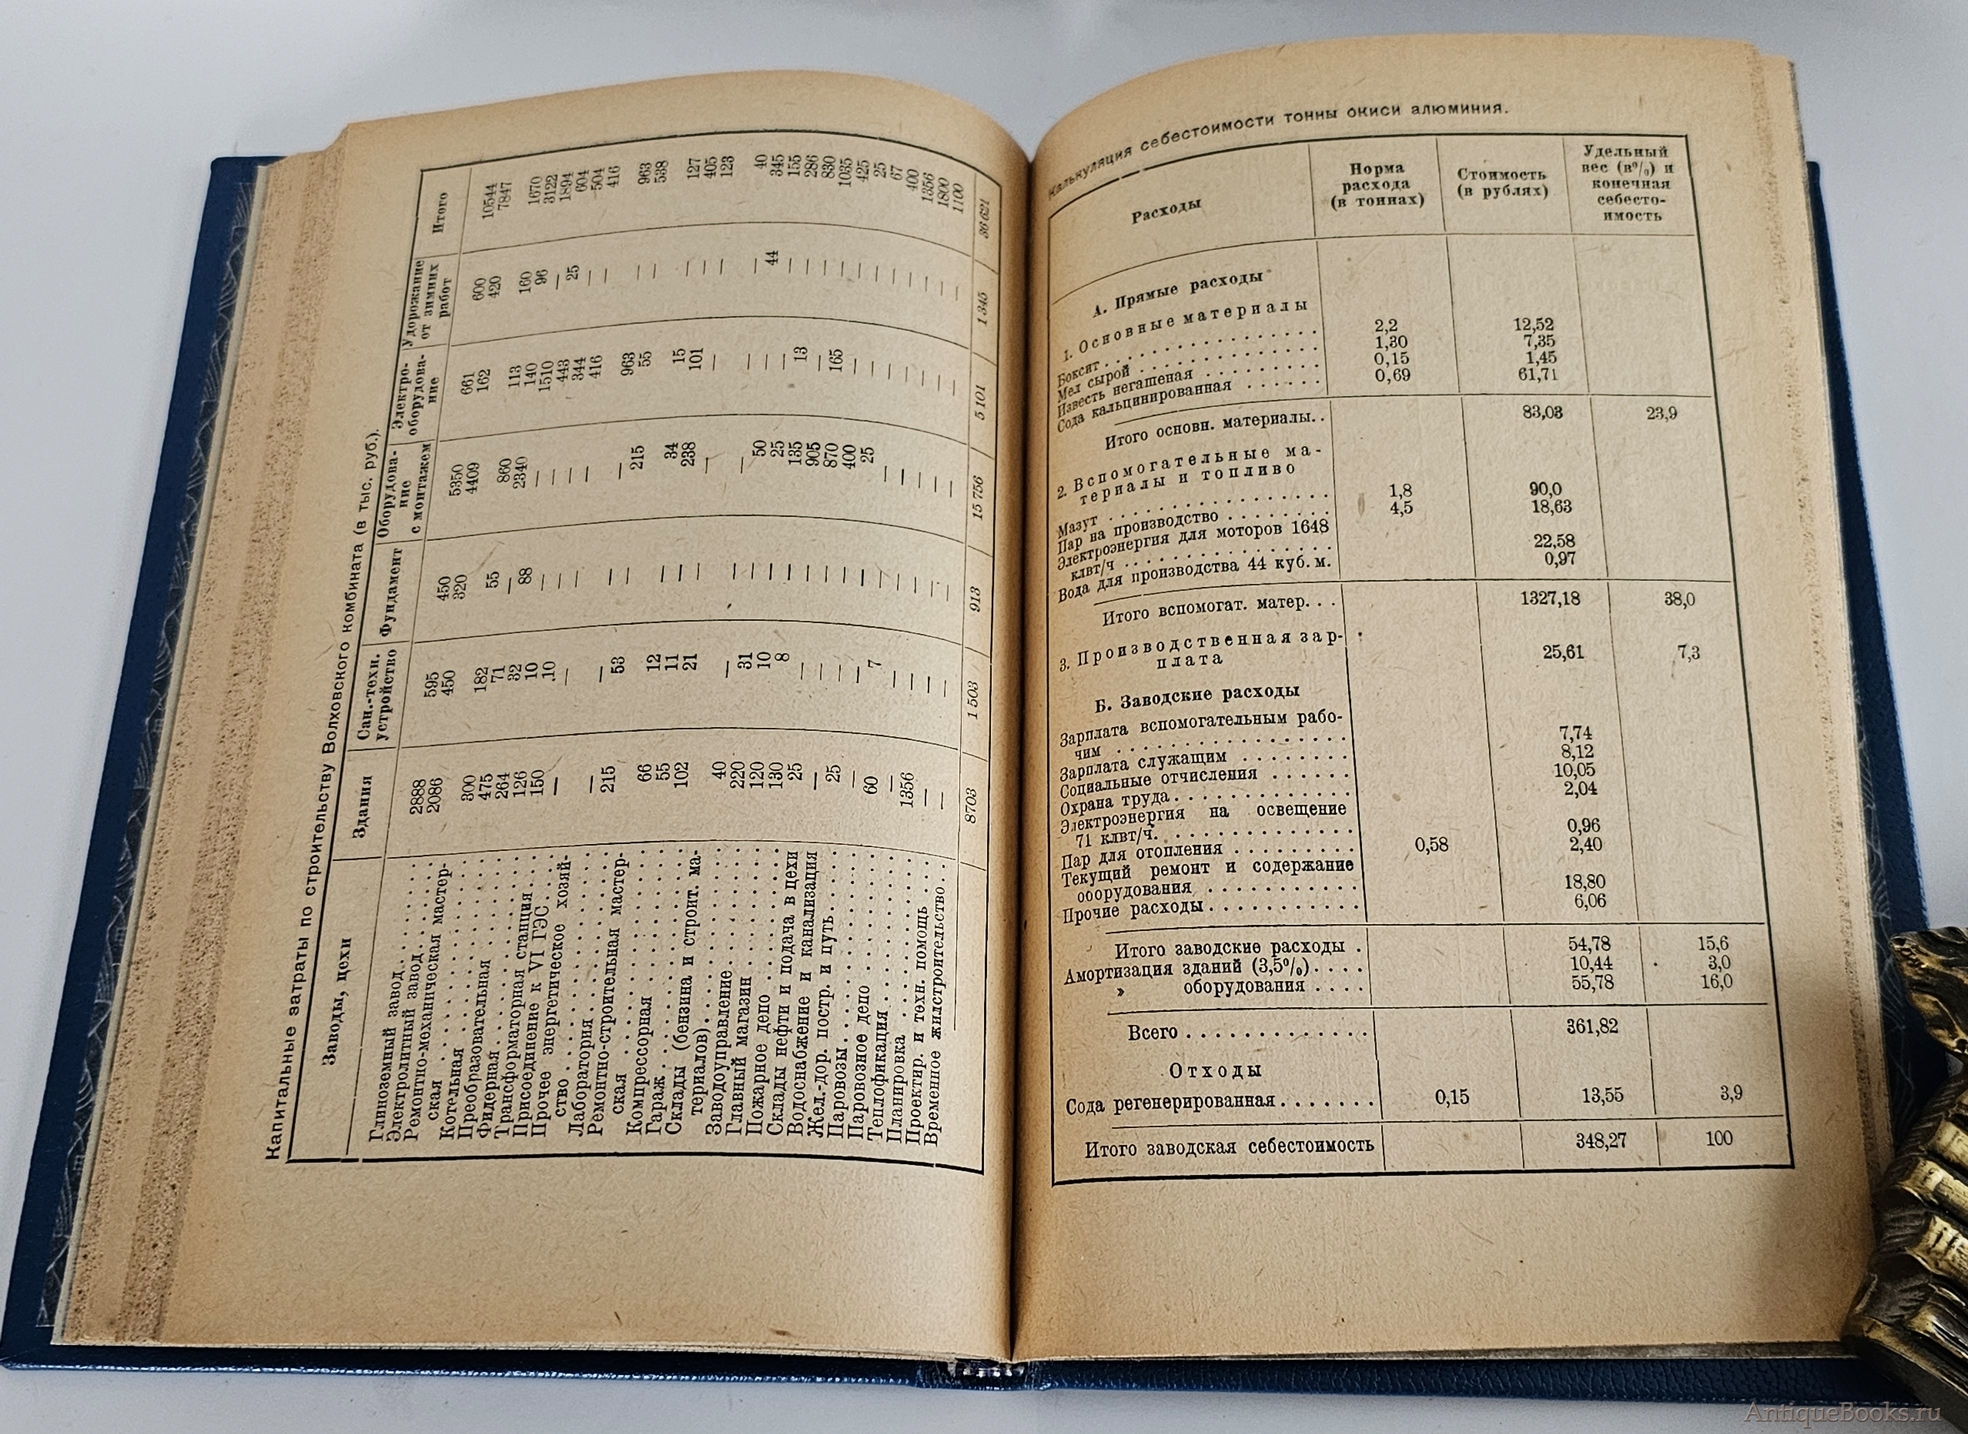 Капитальные затраты по строительству Волховского комбината (в тыс. руб.).
Заводы, цехи Здания Сан.-техн. устройство Фундамент Оборудова- ние с монтажем Электро- оборудова- ние Удорожание от зимних работ Итого
Глиноземный завод 2888 595 450 5350 661 600 10544
Электролитный завод 2086 450 320 4409 162 420 7847
Ремонтно-механическая мастер-
ская 300 182 55 860 113 160 1670
Котельная 475 71 — 2340 140 96 3122
Преобразовательная 264 32 88 — 1510 — 1894
Фидерная 126 10 — — 443 25 604
Трансформаторная станция 150 10 — — 344 — 504
Присоединение к VI ГЭС — — — — 416 — 416
Прочее энергетическое хозяй-
ство — — — — 963 — 963
Лаборатория 215 53 — 215 55 — 538
Ремонтно-строительная мастер-
ская 66 12 — 34 15 — 127
Компрессорная 55 11 — 238 101 — 405
Гараж 102 21 — — — — 123
Склады (бензина и строит. ма-
териалов) 40 — — — — — 40
Заводоуправление 220 31 — 50 — 44 345
Главный магазин 120 10 — 25 — — 155
Пожарное депо 130 8 — 135 13 — 286
Склады нефти и подача в цехи 25 — — 805 — — 830
Водоснабжение и канализация — — — 870 165 — 1035
Жел.-дор. постр. и путь 25 — — 400 — — 425
Паровозы — — — 25 — — 25
Паровозное депо 60 7 — — — — 67
Теплофикация — — — — — — 400
Планировка 1356 — — — — — 1356
Проектир. и техн. помощь — — — — — — 1800
Временное жилстроительство — — — — — — 1100
8703 1 503 913 15 756 5 101 1 345 36 621
Калькуляция себестоимости тонны окиси алюминия.
Расходы Норма расхода (в тоннах) Стоимость (в рублях) Удельный вес (в%) и конечная себесто- имость
А. Прямые расходы
1. Основные материалы
Боксит 2,2 12,52
Мел сырой 1,30 7,35
Известь негашеная 0,15 1,45
Сода кальцинированная 0,69 61,71
Итого основн. материалы 83,03 23,9
2. Вспомогательные ма-
териалы и топливо
Мазут 1,8 90,0
Пар на производство 4,5 18,63
Электроэнергия для моторов 1648
клвт/ч 22,58
Вода для производства 44 куб. м. 0,97
Итого вспомогат. матер. 1327,18 38,0
3. Производственная зар-
плата 25,61 7,3
Б. Заводские расходы
Зарплата вспомогательным рабо-
чим 7,74
Зарплата служащим 8,12
Социальные отчисления 10,05
Охрана труда 2,04
Электроэнергия на освещение
71 клвт/ч. 0,96
Пар для отопления 0,58 2,40
Текущий ремонт и содержание
оборудования 18,80
Прочие расходы 6,06
Итого заводские расходы 54,78 15,6
Амортизация зданий (3,5%) 10,44 3,0
» оборудования 55,78 16,0
Всего 361,82
Отходы
Сода регенерированная 0,15 13,55 3,9
Итого заводская себестоимость 348,27 100
AntiqueBooks.ru